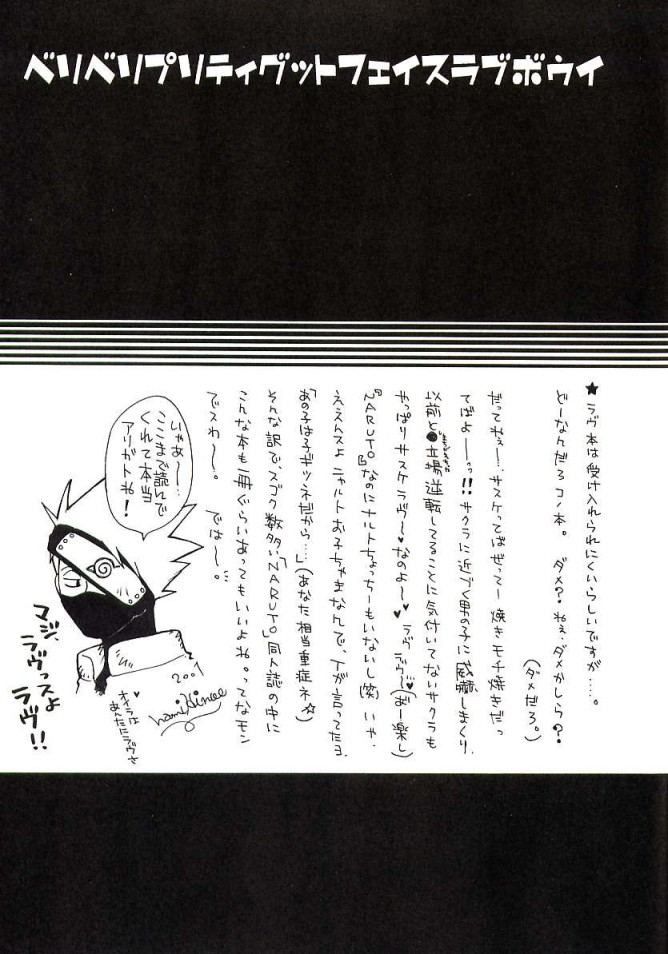 ベリベリプリティグットフェイスラブボウイ
★ラヴ本は受け入れられにくいらしいですが……。
どーなんだろコノ本。 ダメ？ねぇ、ダメかしら？
(ダメだろ。)
だってねぇー…サスケってばぜってー焼きモチ焼きだっ
てばよーっ!!サクラに近づく男の子に威嚇しまくり。
以前と立場逆転してることに気付いてないサクラも
やっぱりサスケラヴ〜♥なのよ〜♥ラヴラヴ〜♥(おー楽し)
『NARUTO』なのにナルトちょっちーもいないし(笑)いゃ、
ええんスよニャルトお子ちゃまなんで、Tが言ってたヨ
「あの子は子ギツネだから…」(あなた相当重症ネ☆)
そんな訳で、スゴク数多い「NARUTO」同人誌の中に
こんな本も一冊ぐらいあってもいいよね。ってなモン
でスわ〜。 では〜。
いゃあ〜…
ここまで読んで
くれて本当
アリガトね！
マジ、
ラヴっスよ
ラヴ!!
2001
オイラは♥
あんたにラヴさ